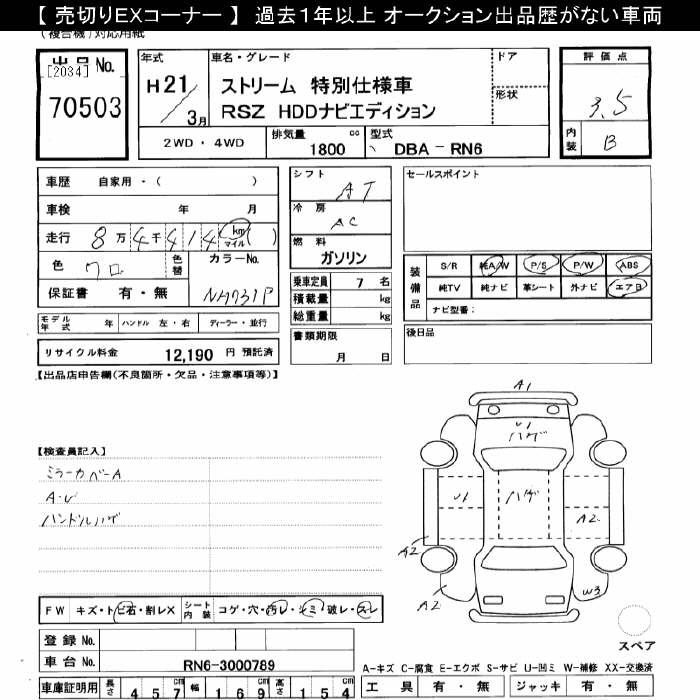 【 売切りEXコーナー 】 過去１年以上 オークション出品歴がない車両
(複合機)対応用紙
出品 No.
[2034]
70503
年式
H21/3月
車名・グレード
ストリーム 特別仕様車
RSZ HDDナビエディション
ドア
形状
評価点
3.5
内装
B
2WD・4WD
排気量
1800 cc
型式
DBA－RN6
車歴 自家用・( )
車検 年 月
走行 8万4千414 km マイル ( )
色 クロ
色替
カラーNo.
NH731P
保証書 有・無
シフト
AT
冷房
AC
燃料
ガソリン
乗車定員 7 名
積載量 kg
総重量 kg
書類期限
月 日
セールスポイント
装備品
S/R 純A/W P/S P/W ABS
純TV 純ナビ 革シート 外ナビ エアB
ナビ型番：
後日品
モデル年式 年 ハンドル 左・右 ディーラー・並行
リサイクル料金 12,190 円 預託済
【出品店申告欄(不良箇所・欠品・注意事項等)】
【検査員記入】
ミラーカバーA
A・U
ハンドルハゲ
A1
U1
ハゲ
U1
ハゲ
A2
A2
A2
W3
スペア
FW キズ・トビ石・割レX
シート内装 コゲ・穴・汚レ・シミ・破レ・スレ
登録 No.
車台 No. RN6-3000789
車庫証明用 長さ 457 cm 幅 169 cm 高さ 154 cm
A-キズ C-腐食 E-エクボ S-サビ U-凹ミ W-補修 XX-交換済
工具 有・無 ジャッキ 有・無